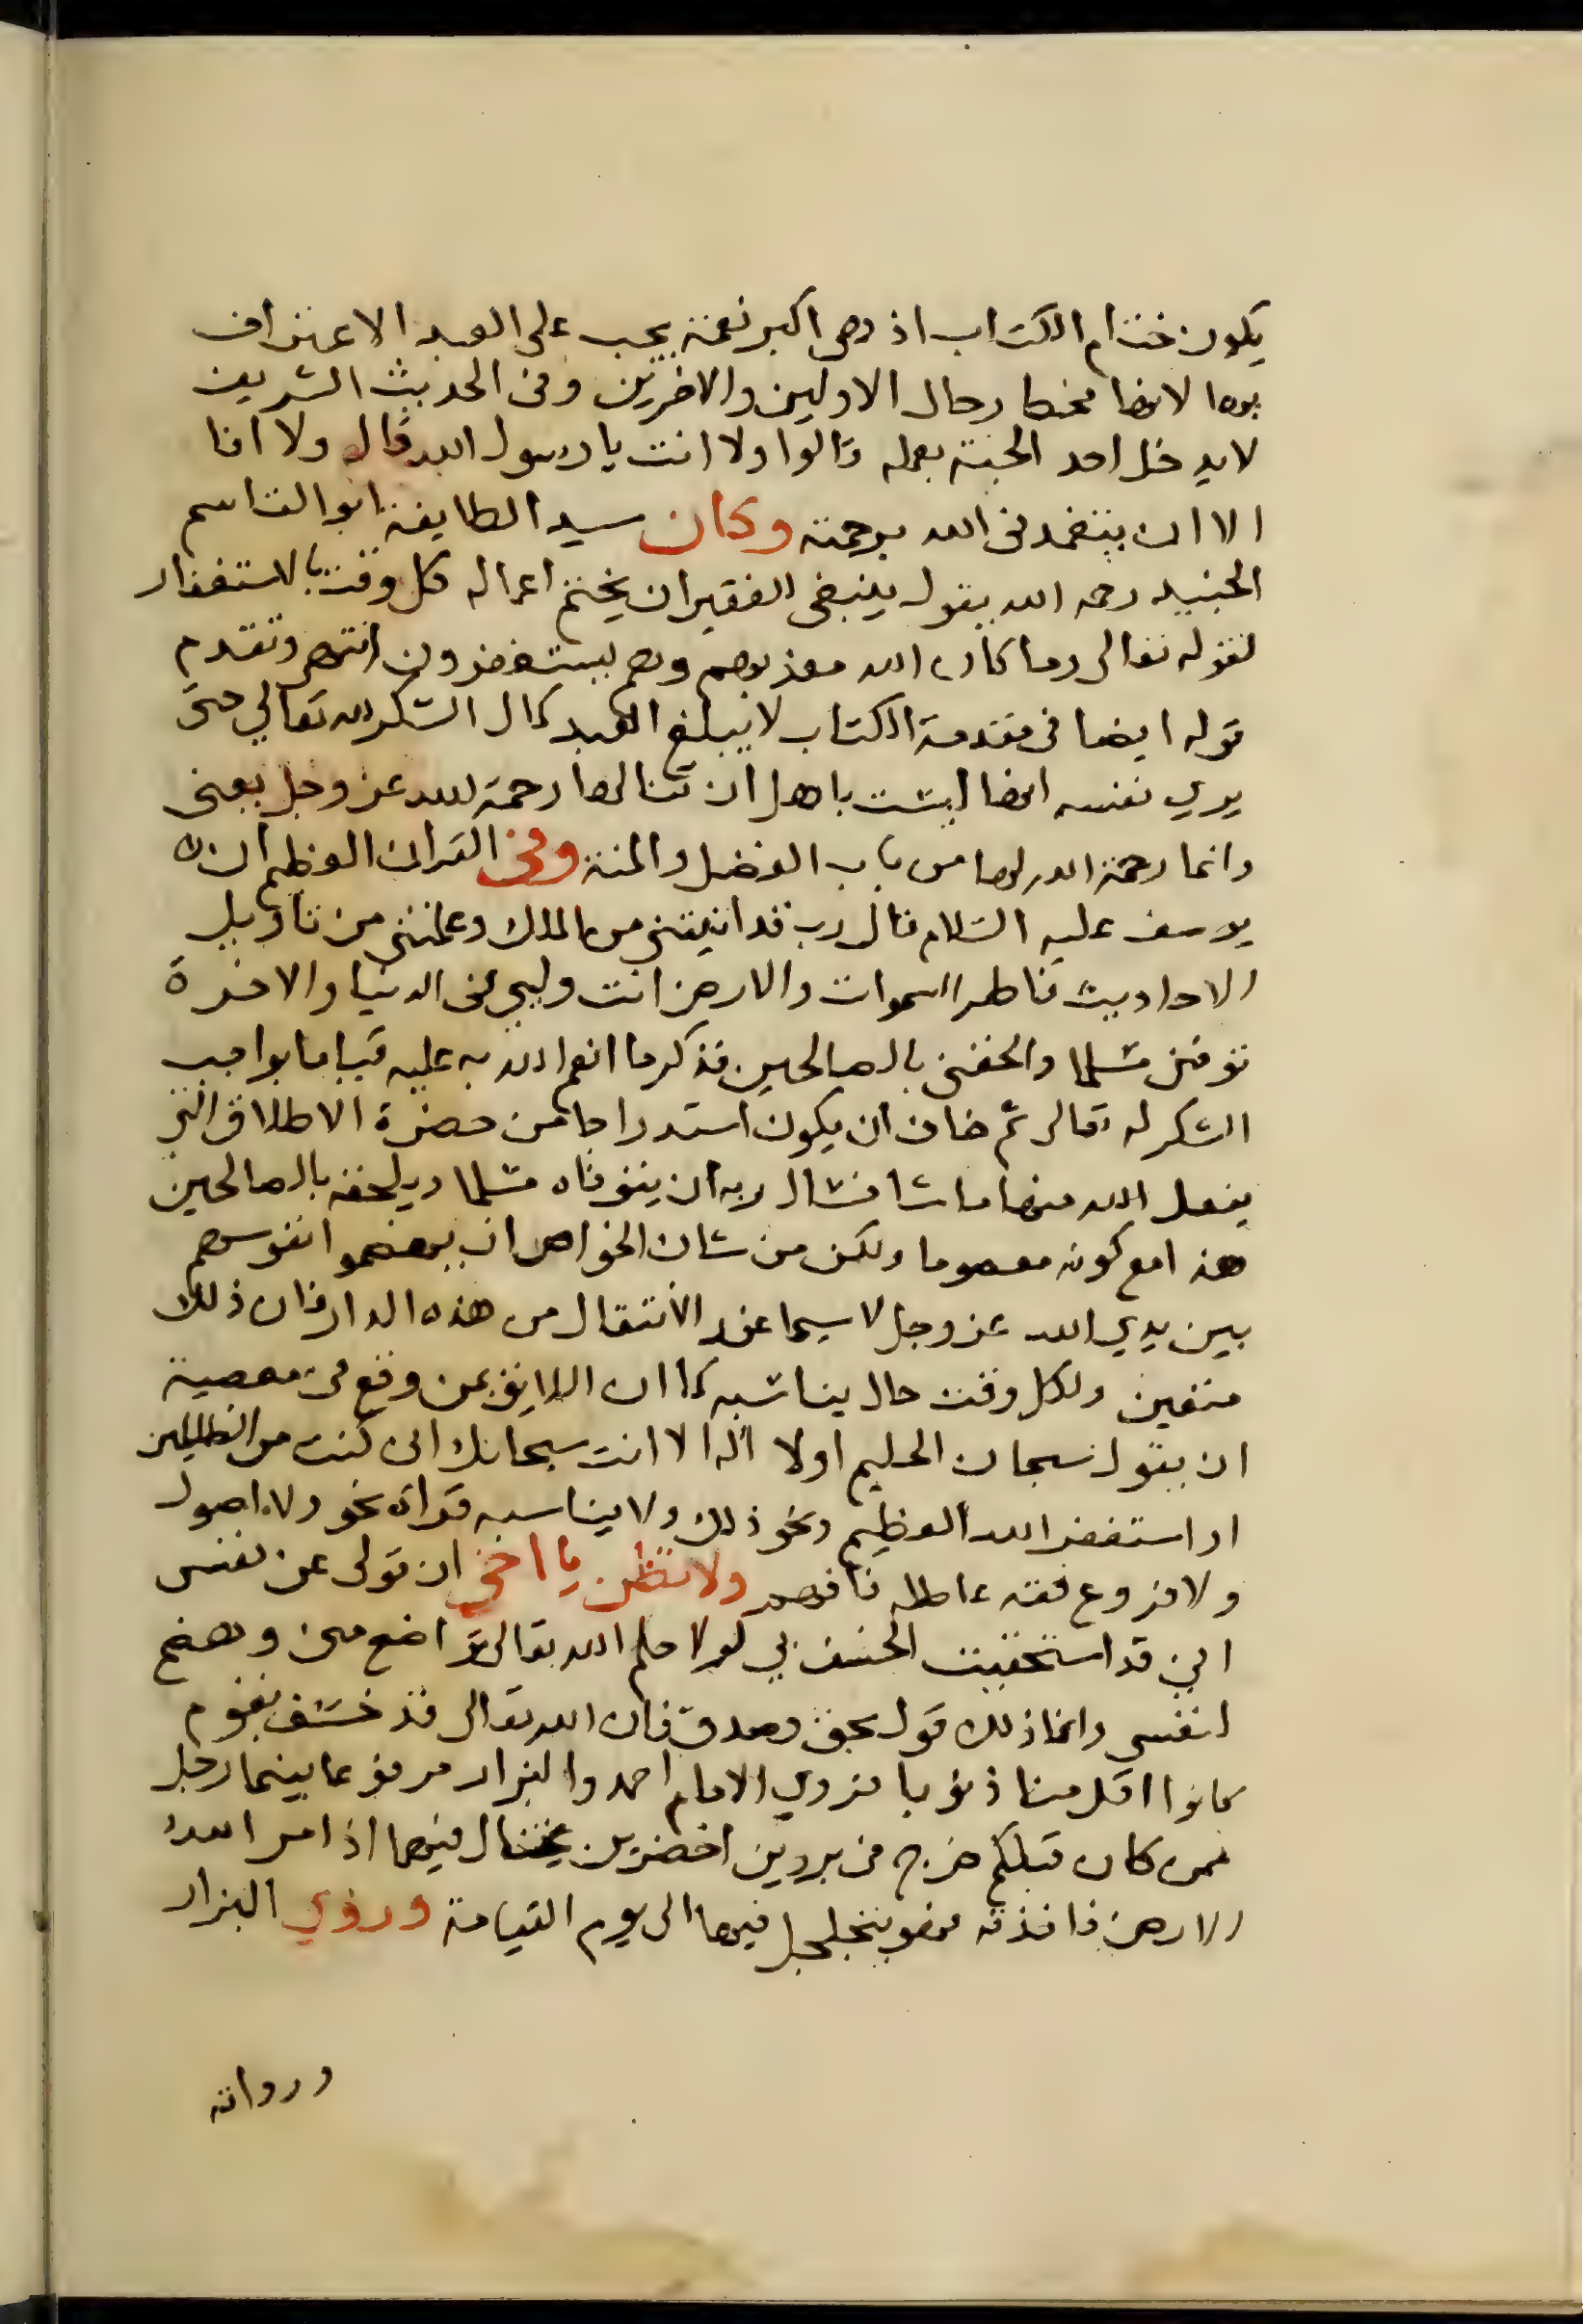 يكون ختام الكتاب اذ هى اكبر نعمة يجب على العبد الاعتراف
بها لانها محط رحال الاولين والاخرين وفى الحديث الشريف
لا يدخل احد الجنة بعمله قالوا ولا انت يا رسول الله قال ولا انا
الا ان يتغمدنى الله برحمته وكان سيد الطايفة ابو القاسم
الجنيد رحمه الله يقول ينبغى الفقير ان يختم اعماله كل وقت بالاستغفار
لقوله تعالى وما كان الله معذبهم وهم يستغفرون انتهى وتقدم
قوله ايضا فى مقدمة الكتاب لا يبلغ العبد كمال الشكر لله تعالي حتى
يري نفسه انها ليست باهل ان تنالها رحمة الله عز وجل يعنى
وانما رحمة الله لها من باب الفضل والمنة وفى القران العظيم ان
يوسف عليه السلام قال رب قد اتيتنى من الملك وعلمتنى من تاويل
الاحاديث فاطر السموات والارض انت وليي فى الدنيا والاخرة
توفنى مسلما والحقنى بالصالحين فذكر ما انعم الله به عليه قياما بواجب
الشكر له تعالى ثم خاف ان يكون استدراجا من حضرة الاطلاق التى
يفعل الله منها ما شا فسال ربه ان يتوفاه مسلما ويلحقه بالصالحين
هذا مع كونه معصوما ولكن من شان الخواص ان يهضموا انفوسهم
بين يدي الله عز وجل لا سيما عند الانتقال من هذه الدار فان ذلك
متعين ولكل وقت حال يناسبه كما ان اللايق بمن وقع فى معصية
ان يقول سبحان الحليم او لا اله الا انت سبحانك انى كنت من الظالمين
او استغفر الله العظيم ونحو ذلك ولا يناسبه قراة نحو ولا اصول
ولا فروع فقه عاطله فافهم ولا تظن يا اخي ان قولى عن نفسى
انى قد استحقيت الخسف بي لولا حلم الله تعالى تواضع منى وهضم
لنفسي وانما ذلك قول بحق وصدق فان الله تعالى قد خسف بقوم
كانوا اقل منا ذنوبا فروي الامام احمد والبزار مرفوعا بينما رجل
ممن كان قبلكم خرج فى بردين اخضرين يختال فيهما اذ امر الله
الارض فاخذته فهو يتجلجل فيها الى يوم القيامة وروي البزار
ورواته